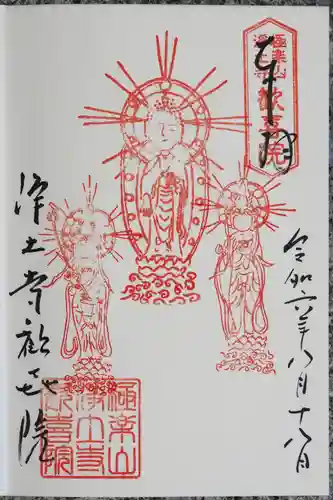 奉拝
極楽山
浄土寺
歓喜院
令和六年八月十八日
浄土寺歓喜院
極楽山
浄土寺
歓喜院